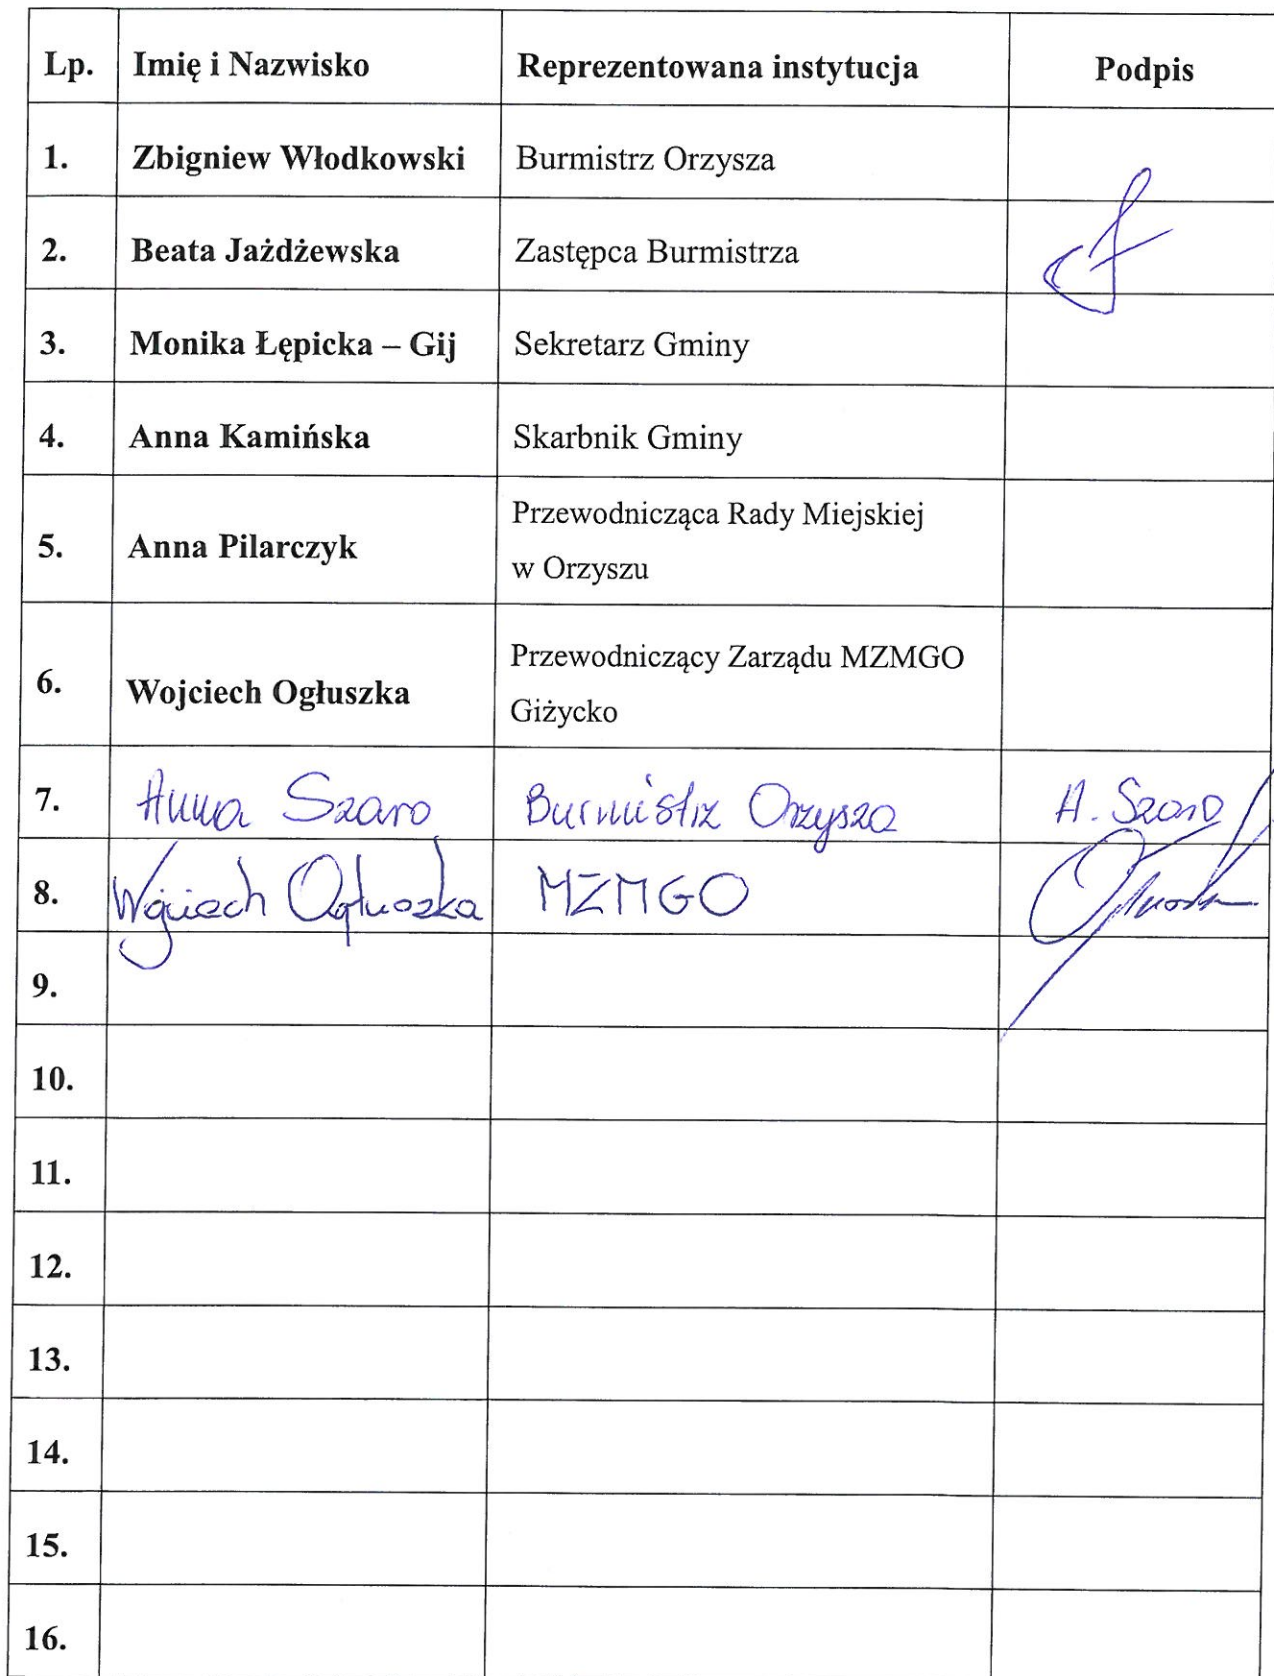 Lp. Imię i Nazwisko Reprezentowana instytucja Podpis
1. Zbigniew Włodkowski Burmistrz Orzysza
2. Beata Jażdżewska Zastępca Burmistrza
3. Monika Łępicka – Gij Sekretarz Gminy
4. Anna Kamińska Skarbnik Gminy
5. Anna Pilarczyk Przewodnicząca Rady Miejskiej
w Orzyszu
6. Wojciech Ogłuszka Przewodniczący Zarządu MZMGO
Giżycko
7. Anna Szaro Burmistrz Orzysza A. Szaro
8. Wojciech Ogłuszka MZMGO
9.
10.
11.
12.
13.
14.
15.
16.